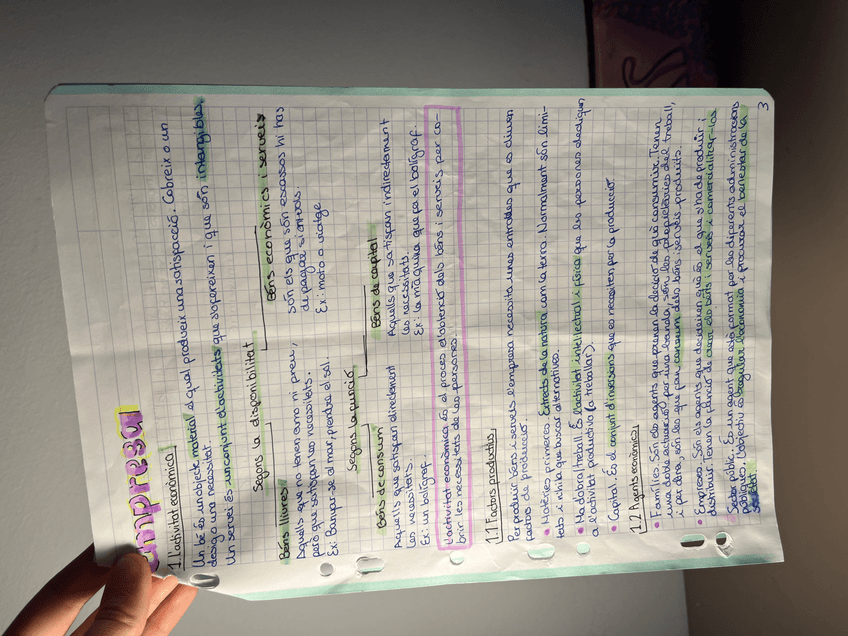 empresa
1. L'activitat econòmica
Un bé és un objecte material el qual produeix una satisfacció. Cobreix o un
desig o una necessitat.
Un servei és un conjunt d'activitats que s'ofereixen i que són intangibles.
Segons la disponibilitat
Béns lliures
Aquells que no tenen amo ni preu,
però que satisfan les necessitats.
Ex: Banyar-se al mar, prendre el sol.
Béns econòmics i serveis
Són els que són escassos hi has
de pagar si en vols.
Ex: moto o viatge
Segons la funció
Béns de consum
Aquells que satisfan directament
les necessitats.
Ex: un bolígraf.
Béns de capital
Aquells que satisfan indirectament
les necessitats.
Ex: la màquina que fa el bolígraf.
L'activitat econòmica és el procés d'obtenció dels béns i serveis per co-
brir les necessitats de les persones.
1.1 Factors productius
Per produir béns i serveis l'empresa necessita unes entrades que es diuen
factors de producció.
• Matèries primeres. Extrets de la natura com la terra. Normalment són limi-
tats i s'ha que buscar alternatives.
• Mà d'obra/treball. És l'activitat intel·lectual i física que les persones dediquen
a l'activitat productiva (a treballar).
• Capital. És el conjunt d'inversions que es necessiten per la producció.
1.2 Agents econòmics
• Famílies. Són els agents que prenen la decisió de què consumir. Tenen
una doble actuació, per una banda, són els propietàries del treball,
i per altra, són els que fan consum dels béns i serveis produïts.
• Empreses. Són els agents que decideixen què és el que s'ha de produir i
distribuir. Tenen la funció de crear els béns i serveis i comercialitzar-los
• Sector públic. És un agent que està format per les diferents administracions
públiques. L'objectiu és regular l'economia i procurar el benestar de la
societat.
3